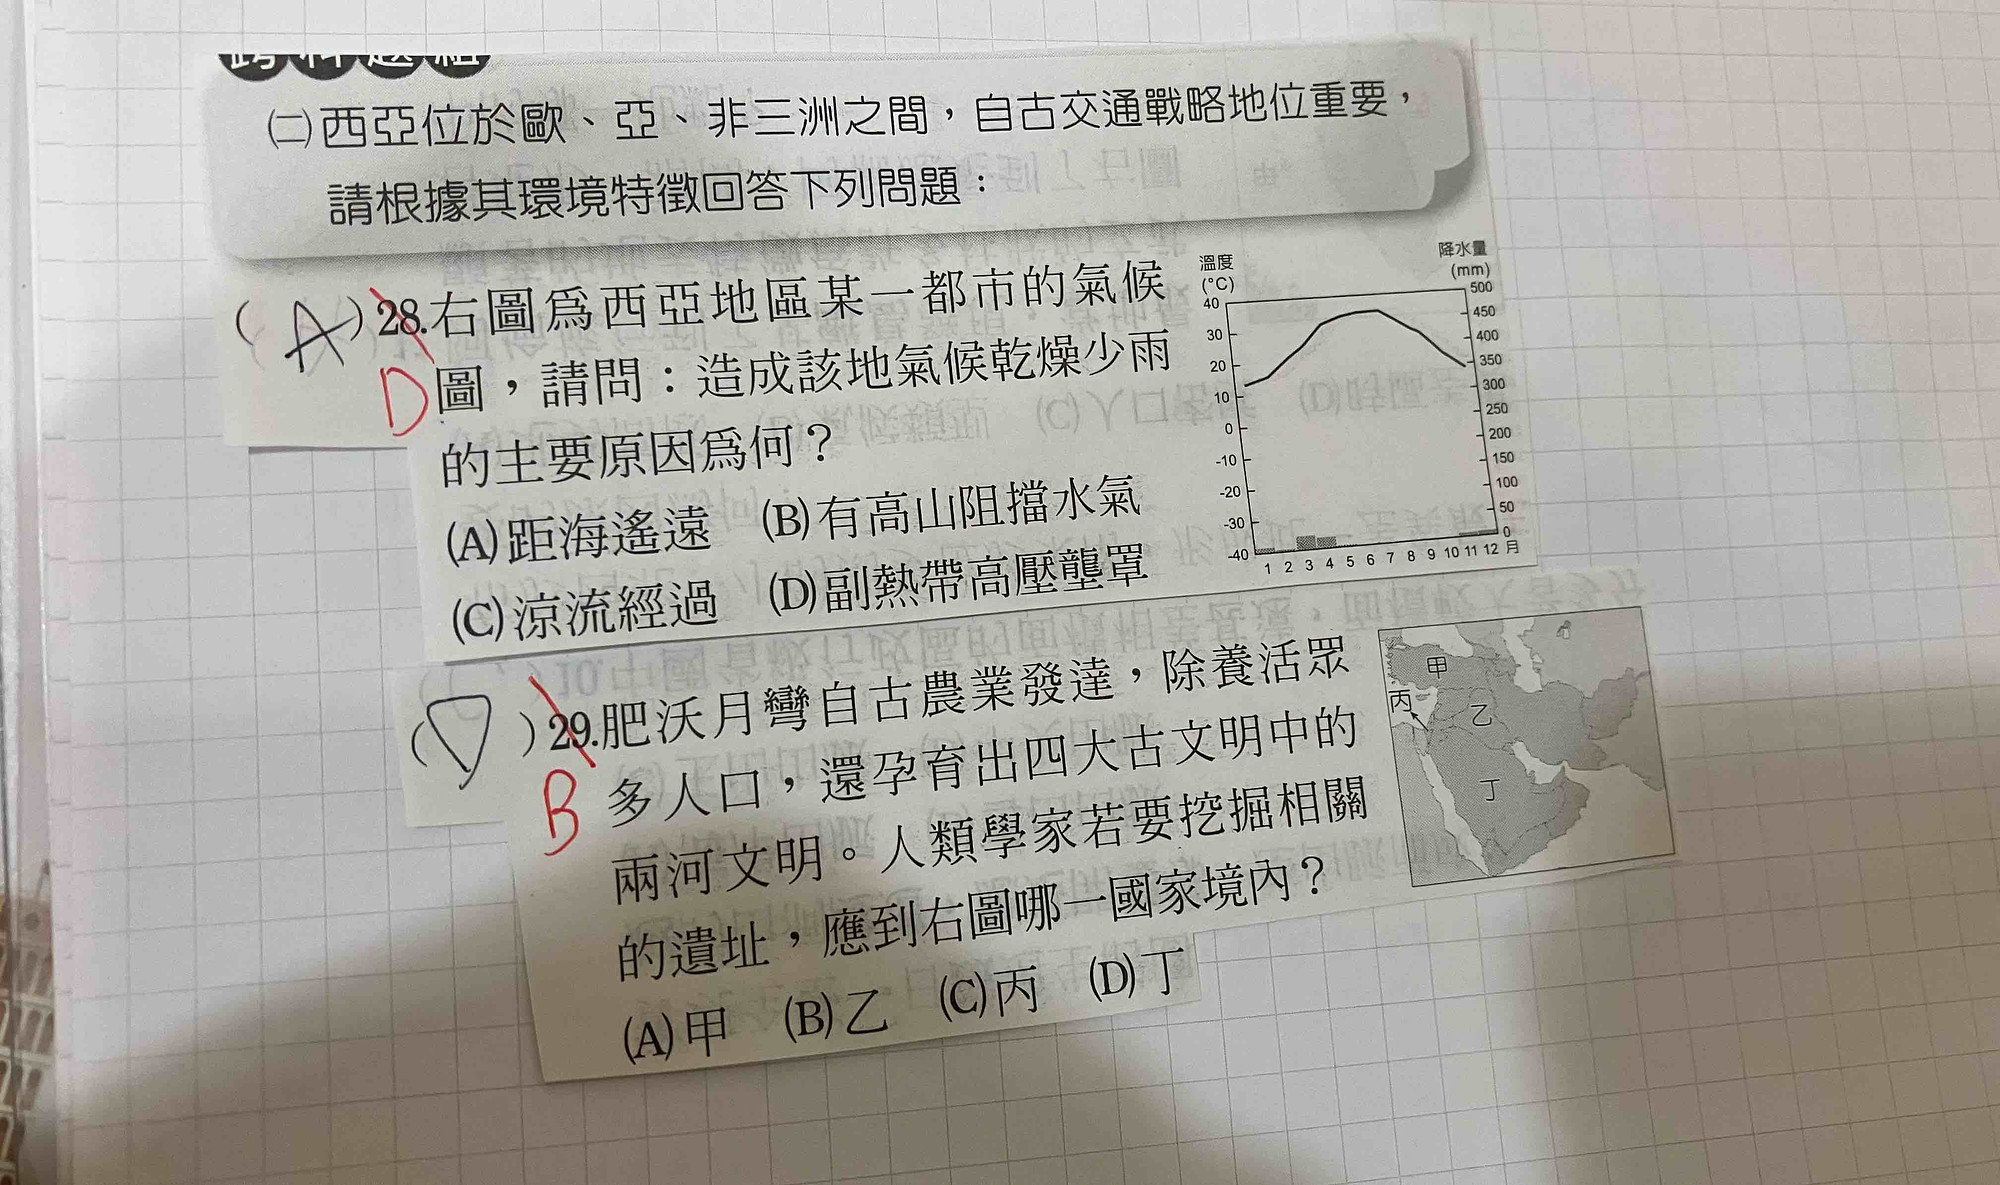 跨科題組
㈡西亞位於歐、亞、非三洲之間，自古交通戰略地位重要，
請根據其環境特徵回答下列問題：
( A )28.右圖爲西亞地區某一都市的氣候
D 圖，請問：造成該地氣候乾燥少雨
的主要原因爲何？
(A)距海遙遠 (B)有高山阻擋水氣
(C)涼流經過 (D)副熱帶高壓壟罩
溫度 降水量
(°C) (mm)
40 500
450
30 400
20 350
300
10 250
0 200
-10 150
100
-20 50
-30 0
-40
1 2 3 4 5 6 7 8 9 10 11 12 月
( D )29.肥沃月彎自古農業發達，除養活眾
B 多人口，還孕育出四大古文明中的
兩河文明。人類學家若要挖掘相關
的遺址，應到右圖哪一國家境內？
(A)甲 (B)乙 (C)丙 (D)丁
甲
丙
乙
丁